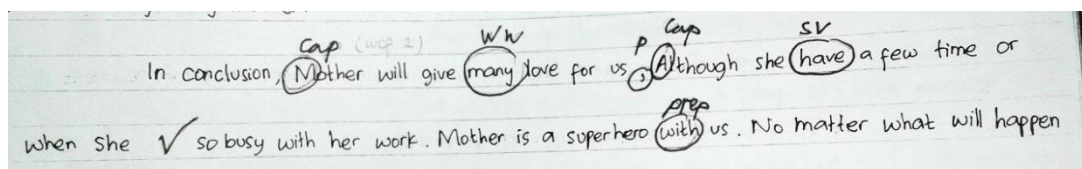 Cap (wcp 2) WW P Cap SV
In conclusion, Mother will give many love for us, Although she have a few time or
prep
when she √ so busy with her work. Mother is a superhero with us. No matter what will happen